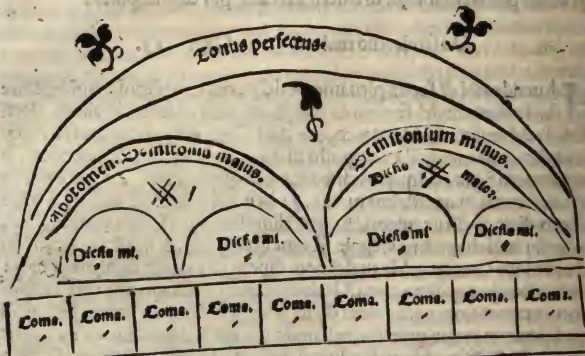 Tonus perfectus.
Apotomen. Semitoniũ maius.
Semitonium minus.
Diesis maior.
Diesis mi.
Diesis mi.
Diesis mi.
Diesis mi.
Coma. Coma. Coma. Coma. Coma. Coma. Coma. Coma. Coma.